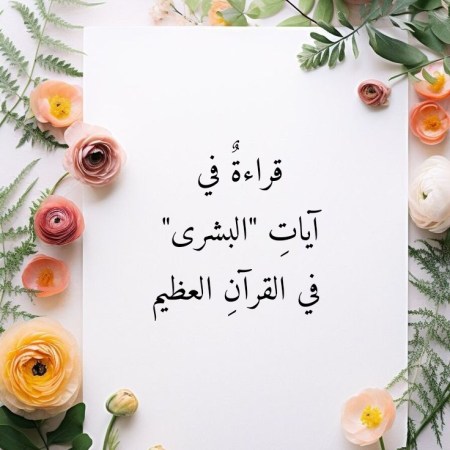 قراءةٌ في
آياتِ "البشرى"
في القرآنِ العظيم